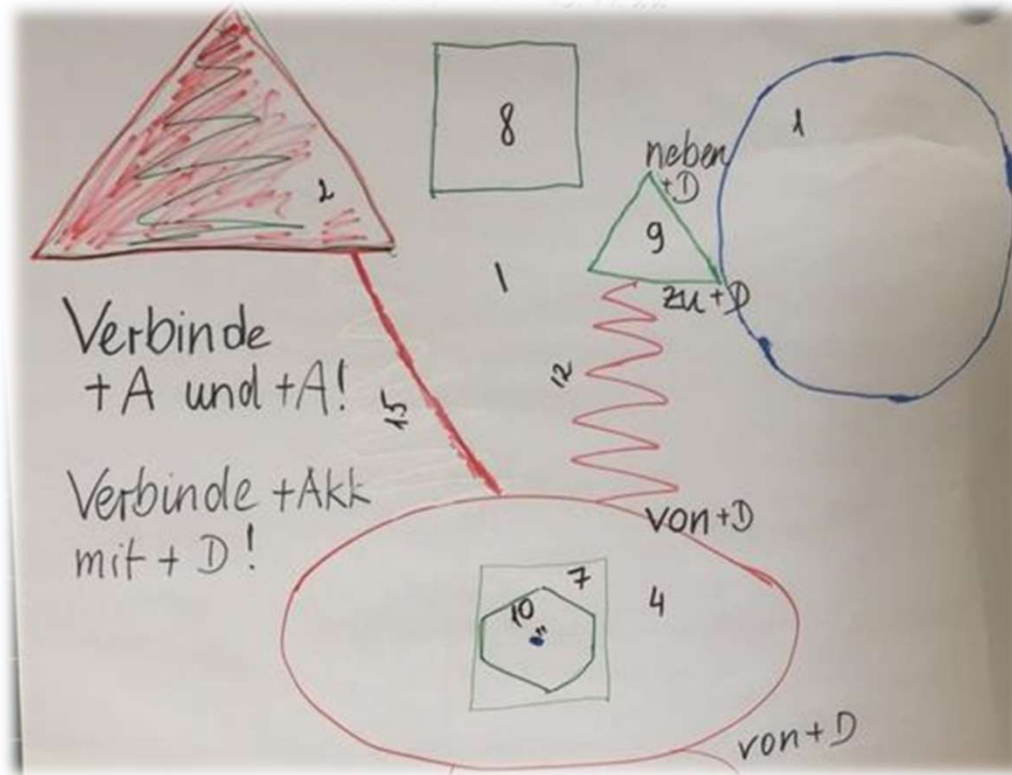 8
1
neben
+D
9
2
1
zu+D
Verbinde
+A und +A!
12
15
Verbinde +Akk
mit + D!
von+D
7
4
10
von+D